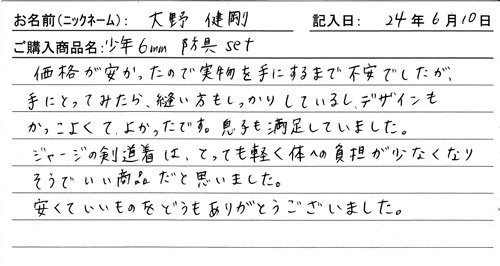 お名前(ニックネーム): 大野 健剛 記入日: 24年6月10日
ご購入商品名: 少年6mm 防具set
価格が安かったので実物を手にするまで不安でしたが、
手にとってみたら、縫い方もしっかりしているし、デザインも
かっこよくて、よかったです。息子も満足していました。
ジャージの剣道着は、とっても軽く体への負担が少なくなり
そうでいい商品だと思いました。
安くていいものをどうもありがとうございました。